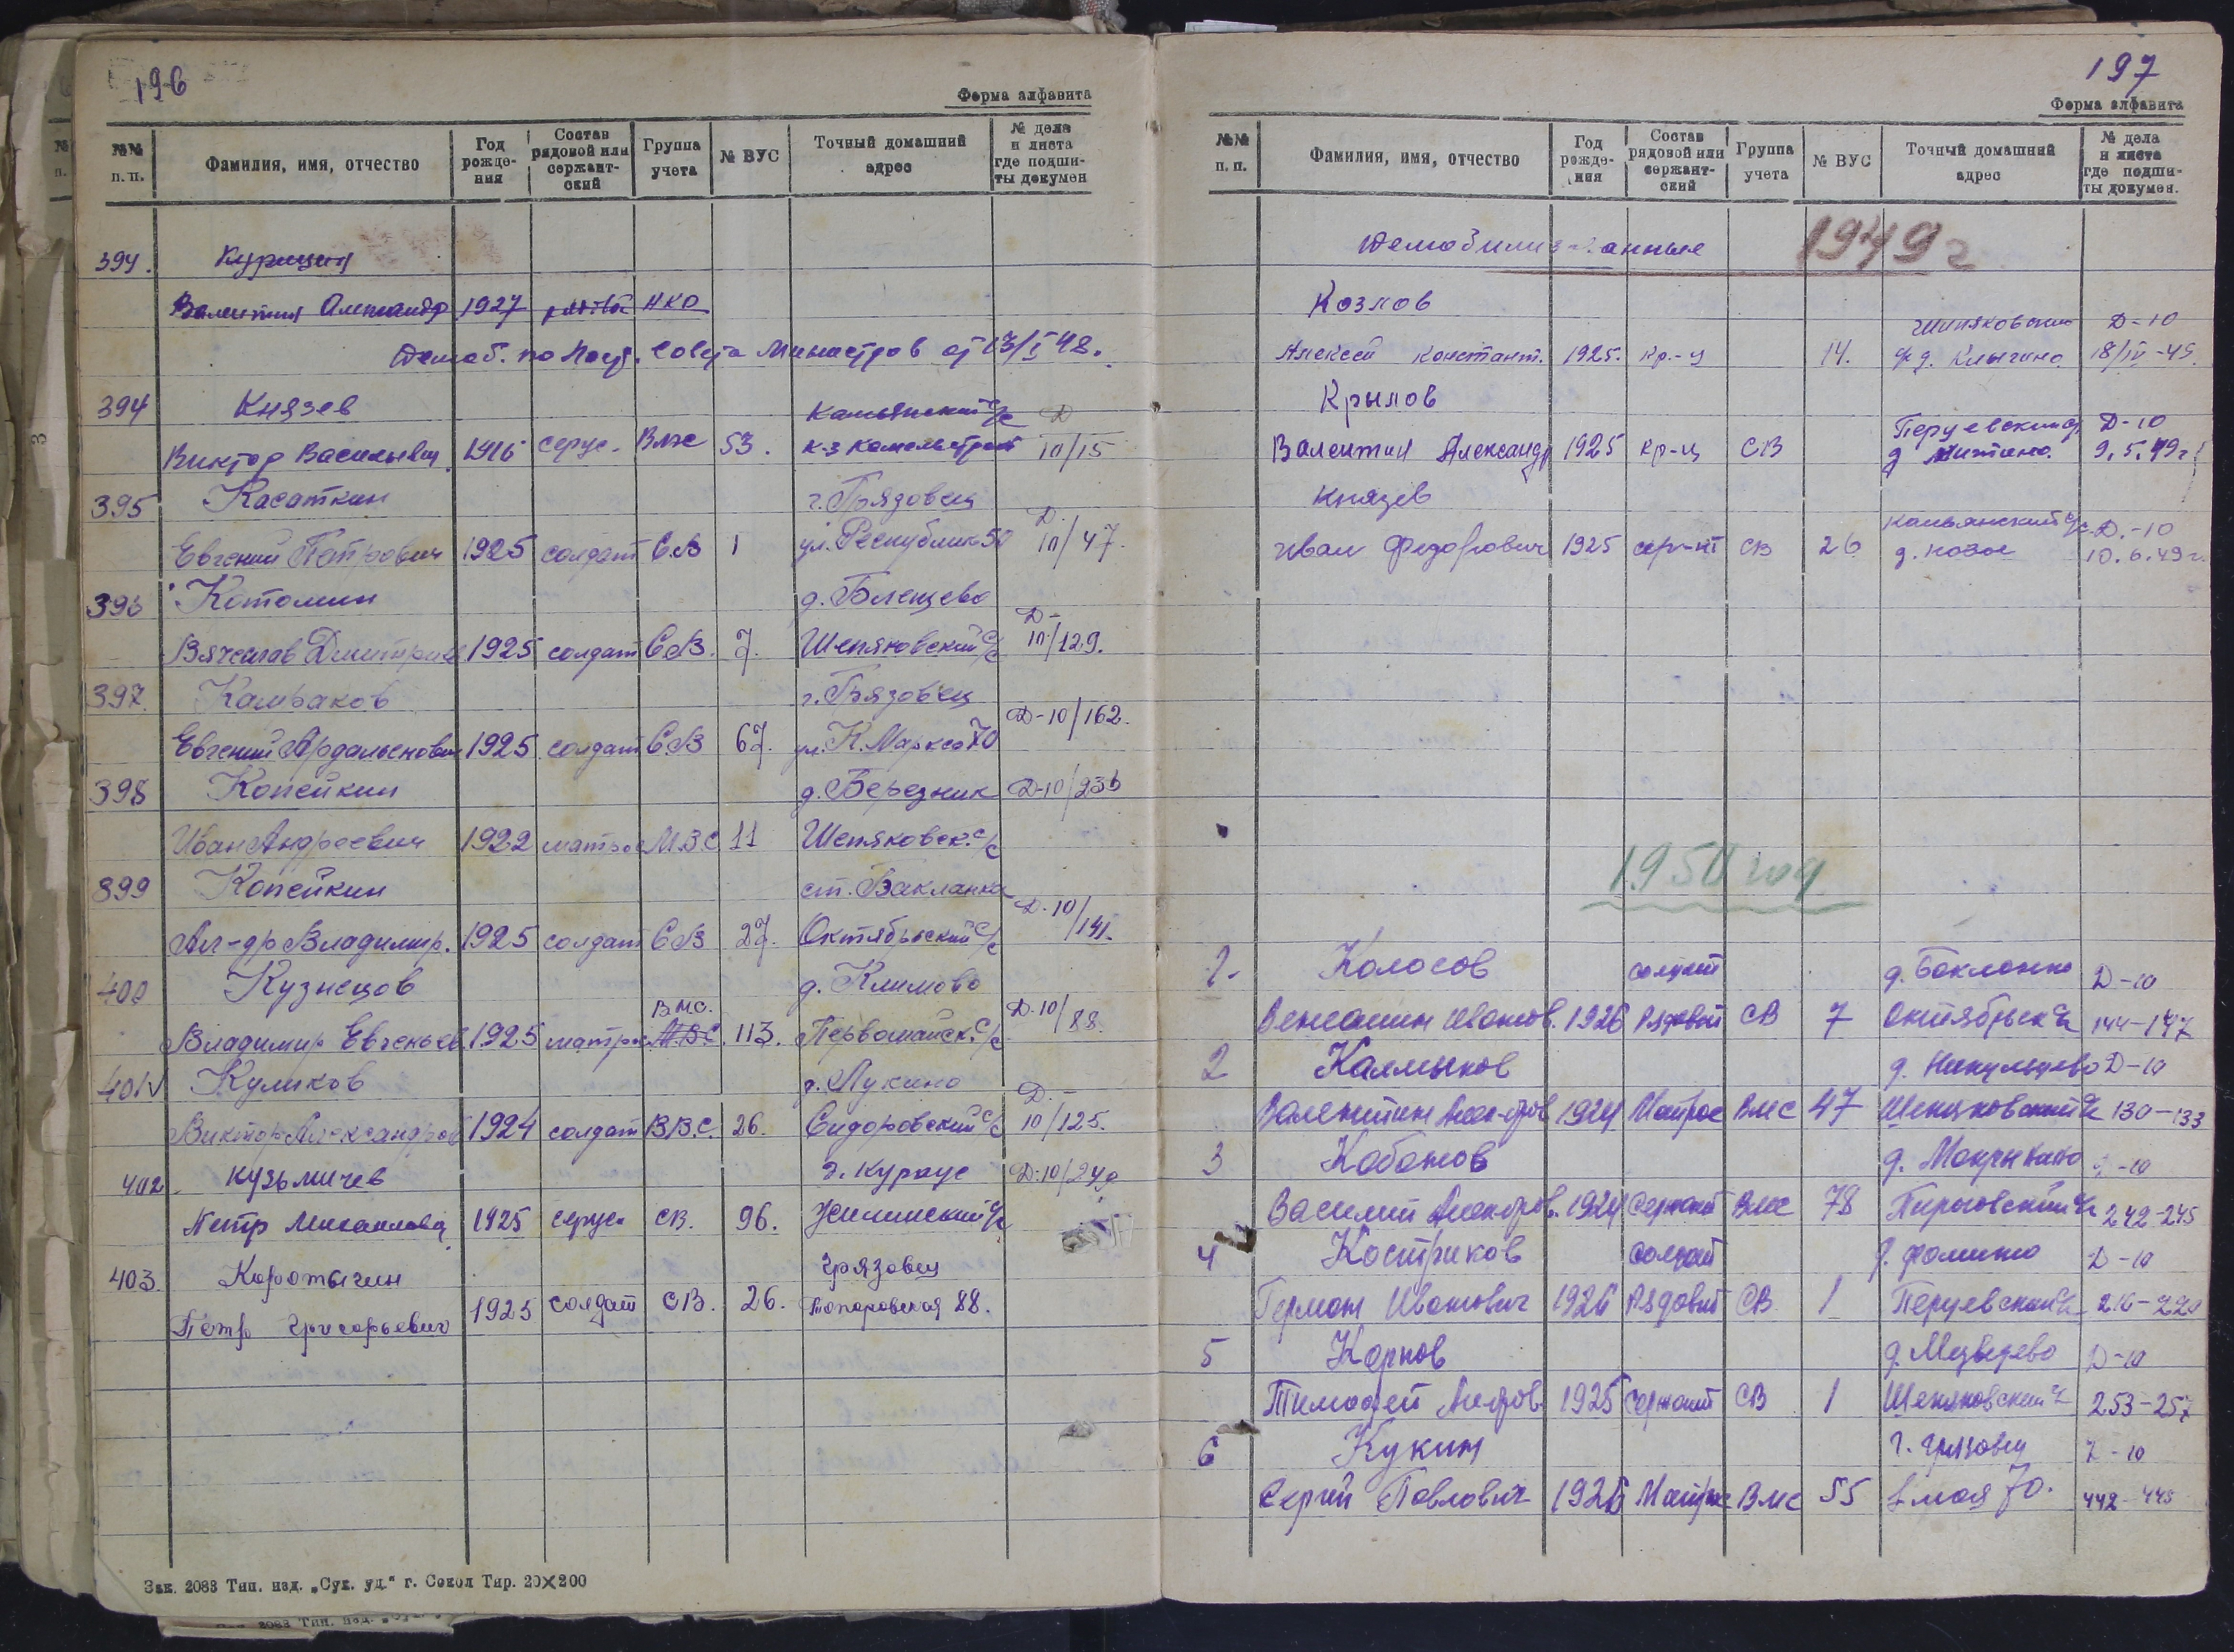 196
Форма алфавита
№№ п. п. Фамилия, имя, отчество Год рожде-ния Состав рядовой или сержант-ский Группа учета № ВУС Точный домашний адрес № дела и листа где подши-ты докумен
394. Курицин
Валентин Александр 1927 НКО
Демоб. по Пост. Совета Министров от 13/I 48.
394 Князев Камьянский с/с Д
Виктор Васильевич 1916 серж. Вмс 53. к-з 10/15
395 Касаткин г. Грязовец Д.
Евгений Петрович 1925 солдат С.В 1 ул. Республик 50 10/47.
396 Котомин д. Бленцево Д-
Вячеслав Дмитриев 1925 солдат С.В. 7. Шепяковский с/с 10/129.
397. Камраков г. Грязовец
Евгений Ардальенович 1925 солдат С.В 67. ул. К. Маркса 70 Д-10/162.
398 Копейкин д. Березник Д-10/236
Иван Андреевич 1922 матрос М.В.С 11 Шепяковск. с/с
399 Копейкин ст. Бакланка Д-10
Ал-др Владимир. 1925 солдат С.В 27. Октябрьский с/с /141.
400 Кузнецов д. Климово
В.М.С.
Владимир Евгеньев. 1925 матрос М.В.С. 113. Первомайск. с/с Д.10/88.
401 V Куликов д. Лукино Д. -
Виктор Александров 1924 солдат В.В.С. 26. Сидоровский с/с 10/125.
402 Кузьмичев д. Курапс Д-10/249
Петр Михайлович 1925 серж. СВ. 96. с/с
403. Коротыгин Грязовец
Петр Григорьевич 1925 солдат СВ. 26. Топоровская 88.
Зак. 2083 Тип. изд. „Сух. уд.“ г. Сокол Тир. 20×200
197
Форма алфавита
№№ п. п. Фамилия, имя, отчество Год рожде-ния Состав рядовой или сержант-ский Группа учета № ВУС Точный домашний адрес № дела и листа где подши-ты докумен.
Демобилизованные 1949 г
Козлов Шепяковский Д-10
Алексей Констант. 1925. кр-ц 14. с/с д. Клыгино 18/IV-49.
Крылов Перцевский Д-10
Валентин Александр 1925 кр-ц СВ д Митино. 9.5.49 г
Князев Камьянский с/с Д.-10
Иван Федорович 1925 серж-нт СВ 26 д. Новое 10.6.49 г.
1950 год
1. Колосов солдат д. Баклонка Д-10
Вениамин Иванов. 1926 Рядовой СВ 7 Октябрьск с/с 144-147
2 Калмыков д. Никульцево Д-10
Валентин Алек-дров 1924 Матрос Вмс 47 Шепяковский с/с 130-133
3 Кабанов д. Мокрынино Д-10
Василий Алек-дров. 1924 Сержант Вмс 78 с/с 242-245
4 Костриков солдат д. Фомино Д-10
Герман Иванович 1926 Рядовой СВ 1 Перцевский с/с 216-220
5 Карпов д. Медведево Д-10
Тимофей 1925 Сержант СВ 1 Шепяковский с/с 253-257
6 Кукин г. Грязовец Д-10
Сергей Павлович 1926 Матрос Вмс 55 1 мая 70. 442-445